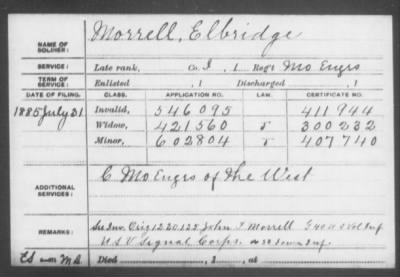 NAME OF SOLDIER: Morrell, Elbridge
SERVICE: Late rank, Co. I, 1 Reg't Mo Engrs
TERM OF SERVICE: Enlisted , 1 Discharged , 1
DATE OF FILING. CLASS. APPLICATION NO. LAW. CERTIFICATE NO.
1885 July 31 Invalid, 546095 411944
Widow, 421560 300232
Minor, 602804 407740
ADDITIONAL SERVICES: C Mo Engrs of the West
REMARKS: See Inv. Orig 1220122 John F Morrell
U.S.V Signal Corps.
Died , 1 , at